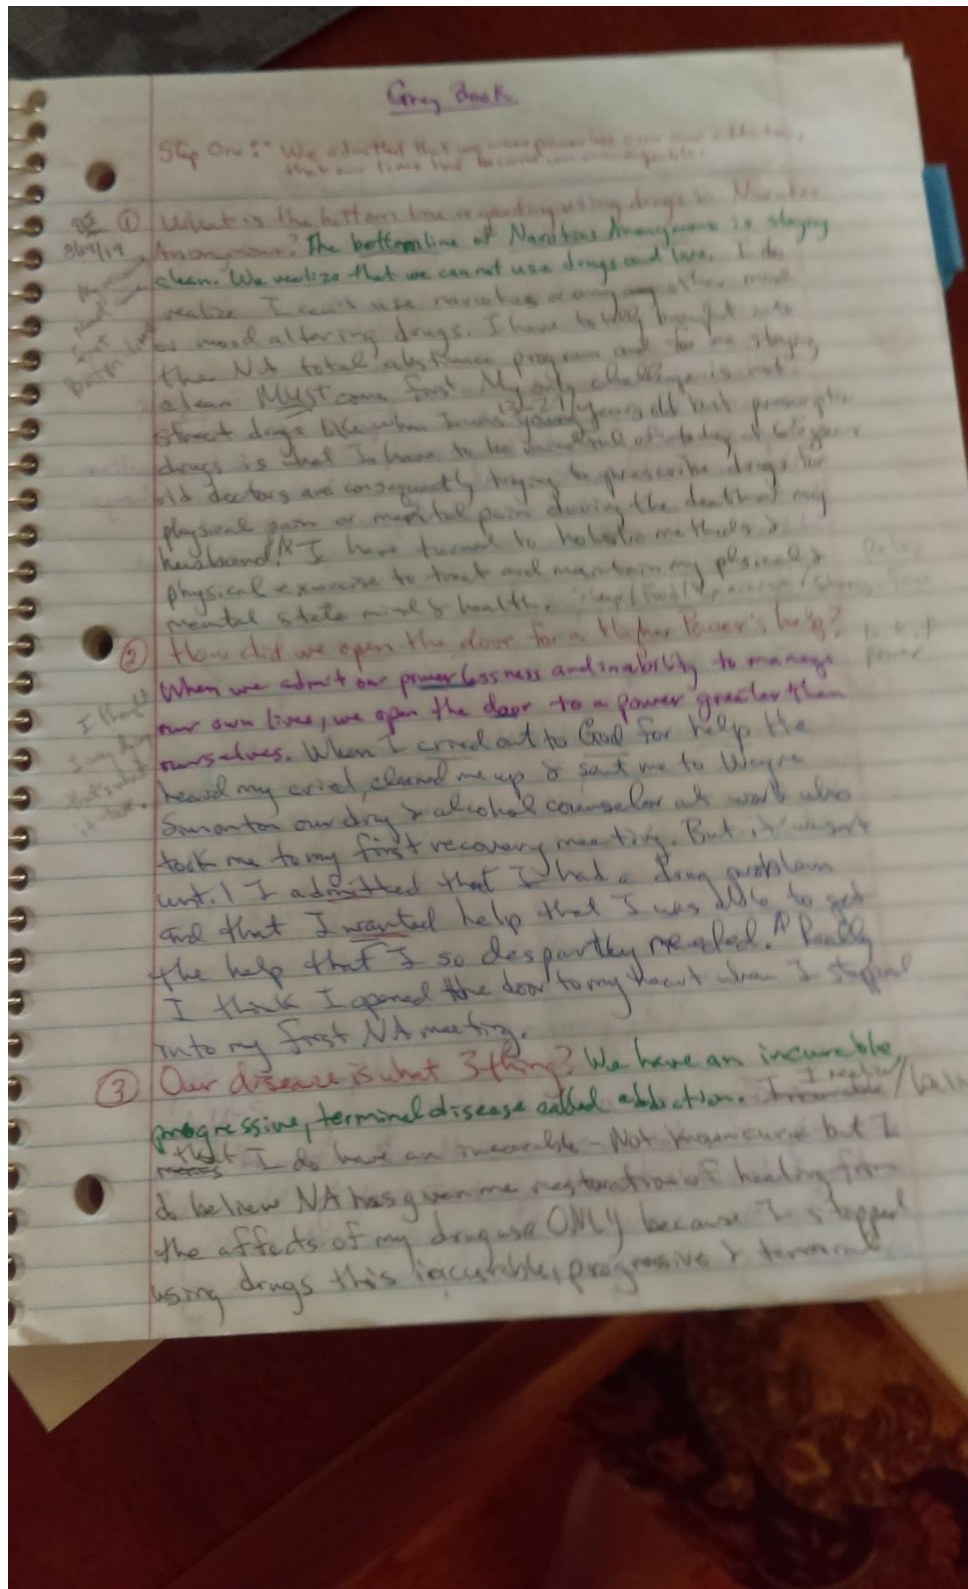 Grey Book
Step One: "We admitted that we were powerless over our addiction,
that our lives had become unmanageable."
8/19/19
① What is the bottom line regarding using drugs in Narcotics
Anonymous? The bottom line of Narcotics Anonymous is staying
clean. We realize that we cannot use drugs and live. I do
realize I can't use narcotics or any other mind
or mood altering drugs. I have totally bought into
the NA total abstinence program and for me staying
clean MUST come first. My only challenge is not
street drugs like when I was 13-27 years old but prescription
drugs is what I have to be mindful of today at 62 years
old doctors are consequently trying to prescribe drugs for
physical pain or mental pain during the death of my
husband. I have turned to holistic methods &
physical exercise to treat and maintain my physical &
mental state mind & health.
② How did we open the door for a Higher Power's help?
When we admit our powerlessness and inability to manage
our own lives, we open the door to a power greater than
ourselves. When I cried out to God for help He
heard my cried, cleaned me up & sent me to Wayne
our drug & alcohol counselor at work who
took me to my first recovery meeting. But it wasn't
until I admitted that I had a drug problem
and that I wanted help that I was able to get
the help that I so despartley needed. Really
I think I opened the door to my heart when I stepped
into my first NA meeting.
③ Our disease is what 3 thing? We have an incurable,
progressive, terminal disease called addiction. I realize
that I do have an incurable - Not known cure but I
do believe NA has given me restoration of healing from
the affects of my drug use ONLY because I stopped
using drugs this incurable, progressive & terminal